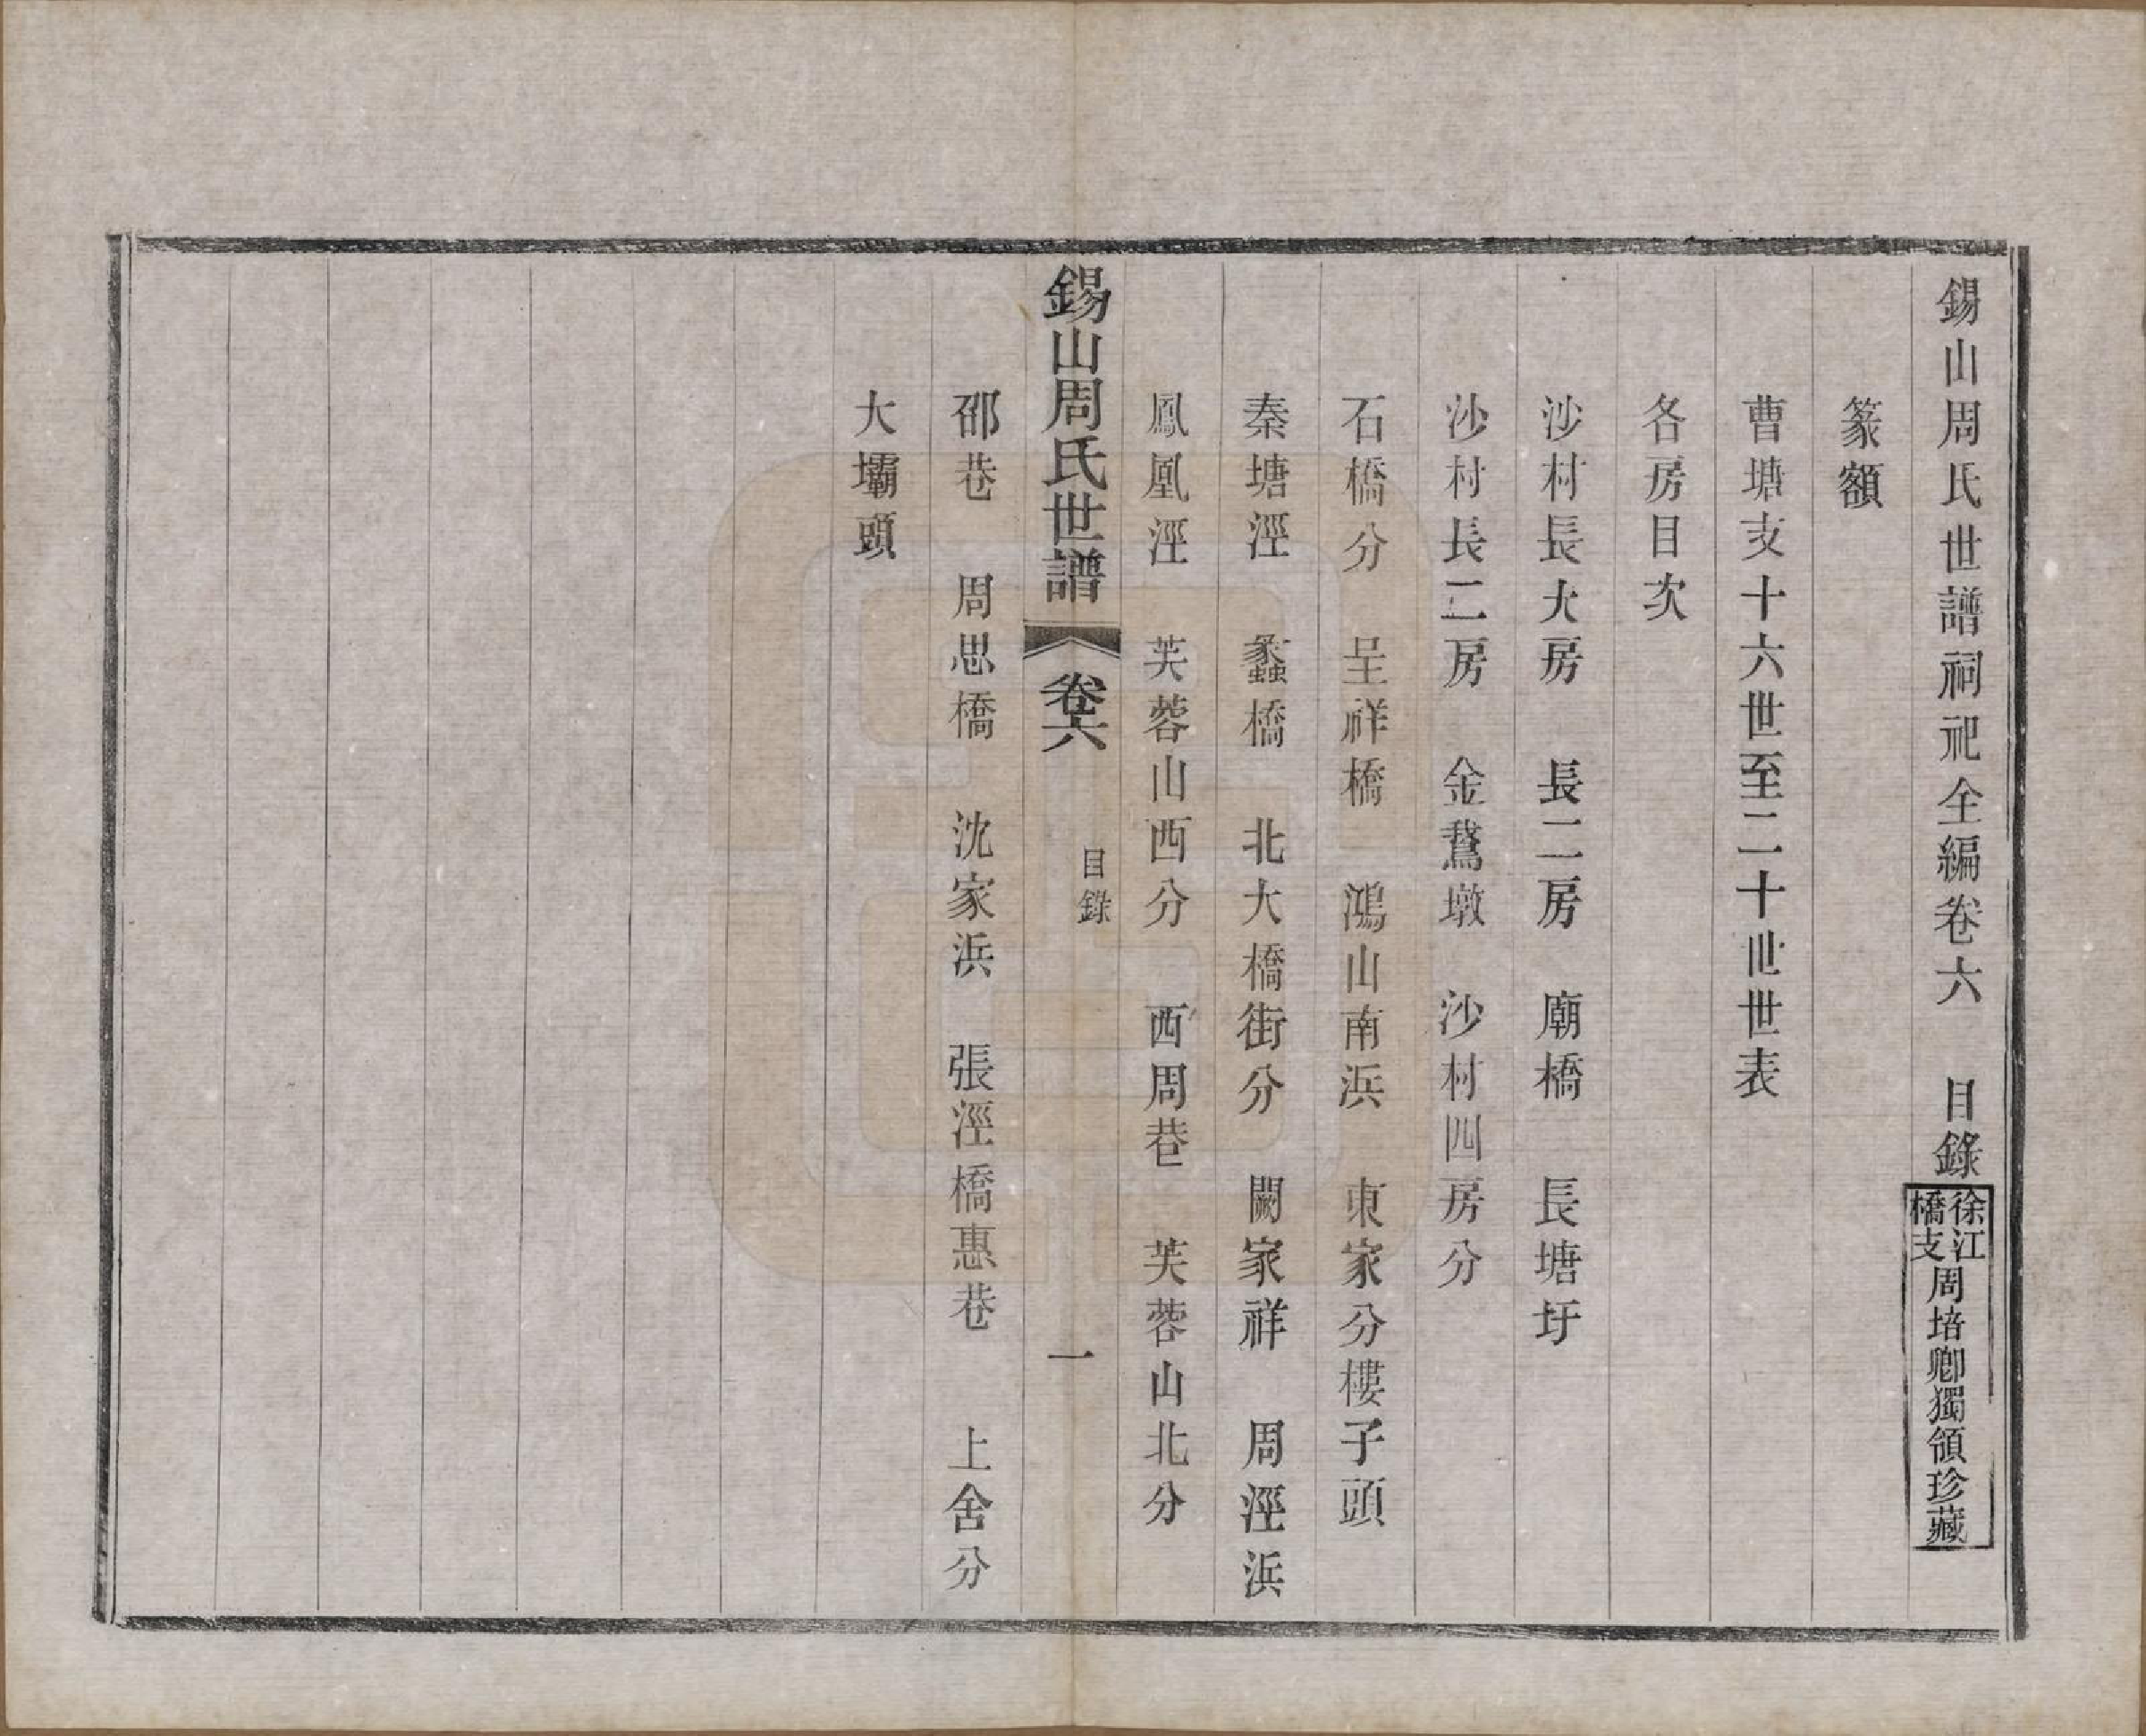 錫山周氏世譜祠祀全編卷六　目錄
徐江橋支周培卿獨領珍藏
篆額
曹塘支十六世至二十世世表
各房目次
沙村長大房　長二房　廟橋　長塘圩
沙村長二房　金鵞墩　沙村四房分
石橋分　呈祥橋　鴻山南浜　東家分樓子頭
秦塘涇　蠡橋　北大橋街分　闕家祥　周涇浜
鳳凰涇　芙蓉山西分　西周巷　芙蓉山北分
錫山周氏世譜　卷六　目錄　一
邵巷　周思橋　沈家浜　張涇橋惠巷　上舍分
大壩頭